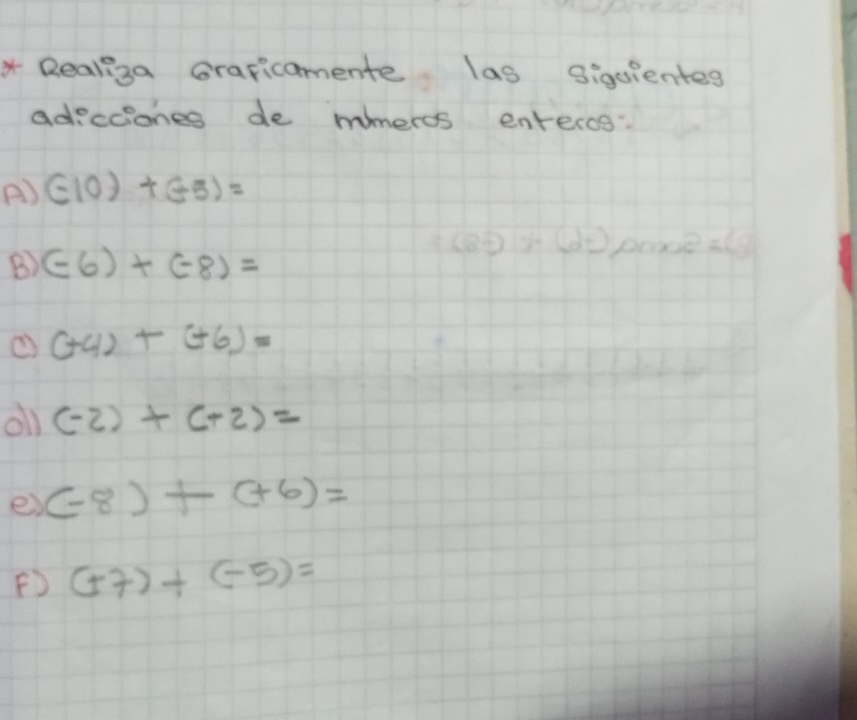 * Realiza Graficamente las siguientes
adicciones de números enteros:
A) (-10) + (-5) =
B) (-6) + (-8) =
c) (+4) + (+6) =
d) (-2) + (+2) =
e) (-8) + (+6) =
F) (+7) + (-5) =